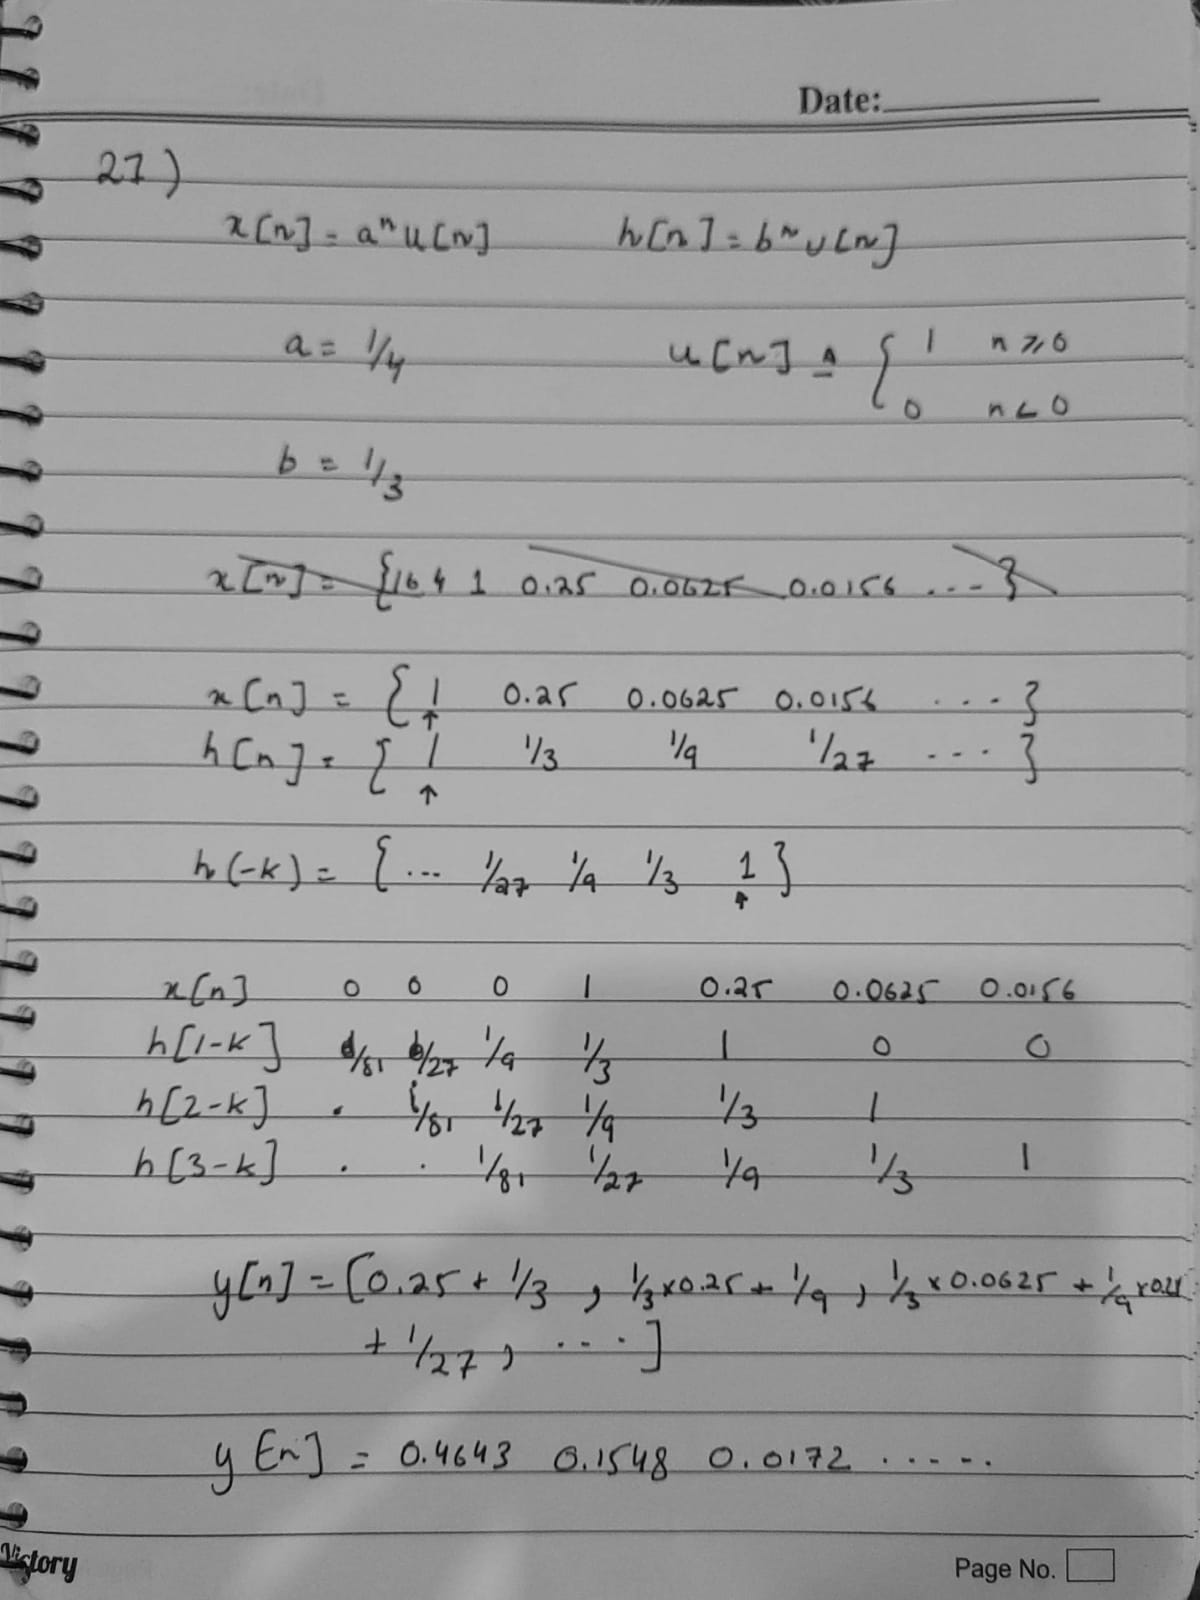 Date:
27)
x[n] = aⁿ u[n] h[n] = bⁿ u[n]
a = 1/4 u[n] ≜ { 1 n ⩾ 0
0 n < 0
b = 1/3
x[n] = {16 4 1 0.25 0.0625 0.0156 ... }
x[n] = { 1 0.25 0.0625 0.0156 .... }
↑
h[n] = { 1 1/3 1/9 1/27 .... }
↑
h(-k) = { ... 1/27 1/9 1/3 1 }
↑
x[n] 0 0 0 1 0.25 0.0625 0.0156
h[1-k] 1/81 1/27 1/9 1/3 1 0 0
h[2-k] . 1/81 1/27 1/9 1/3 1
h[3-k] . . 1/81 1/27 1/9 1/3 1
y[n] = [0.25 + 1/3 , 1/3 x 0.25 + 1/9 , 1/3 x 0.0625 + 1/9 x
+ 1/27 , .... ]
y[n] = 0.4643 0.1548 0.0172 .....
Victory
Page No.